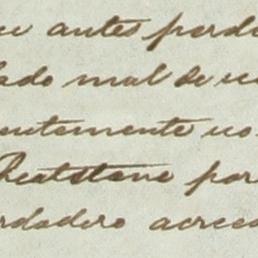 antes perdo
lado mal de
ntemente no
Wheatstone por
rdadero acree